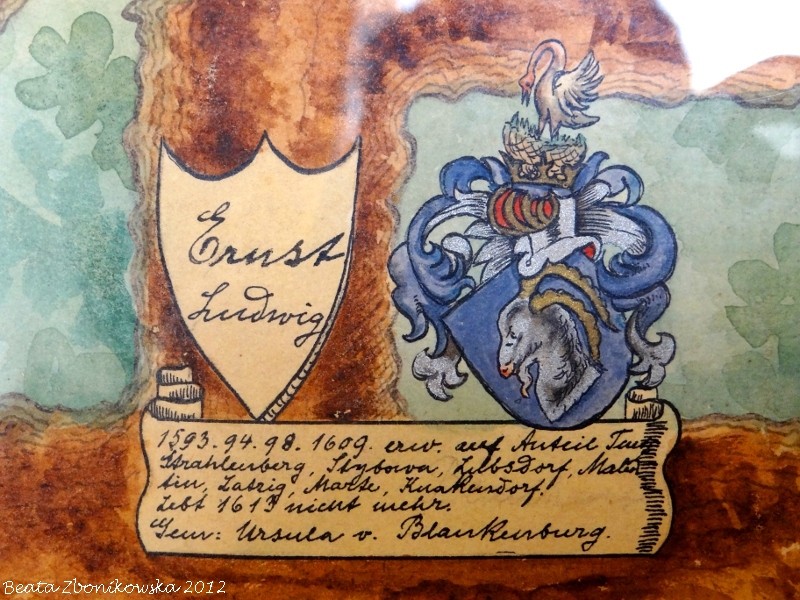 Ernst
Ludwig
1593. 94. 98. 1609. erw. auf Anteil
Strahlenberg, Stybowa, Lubsdorf, Malin
tin, Latzig, Marte, Knakendorf.
Lebt 1613 nicht mehr.
Gem: Ursula v. Blankenburg.
Beata Zbonikowska 2012